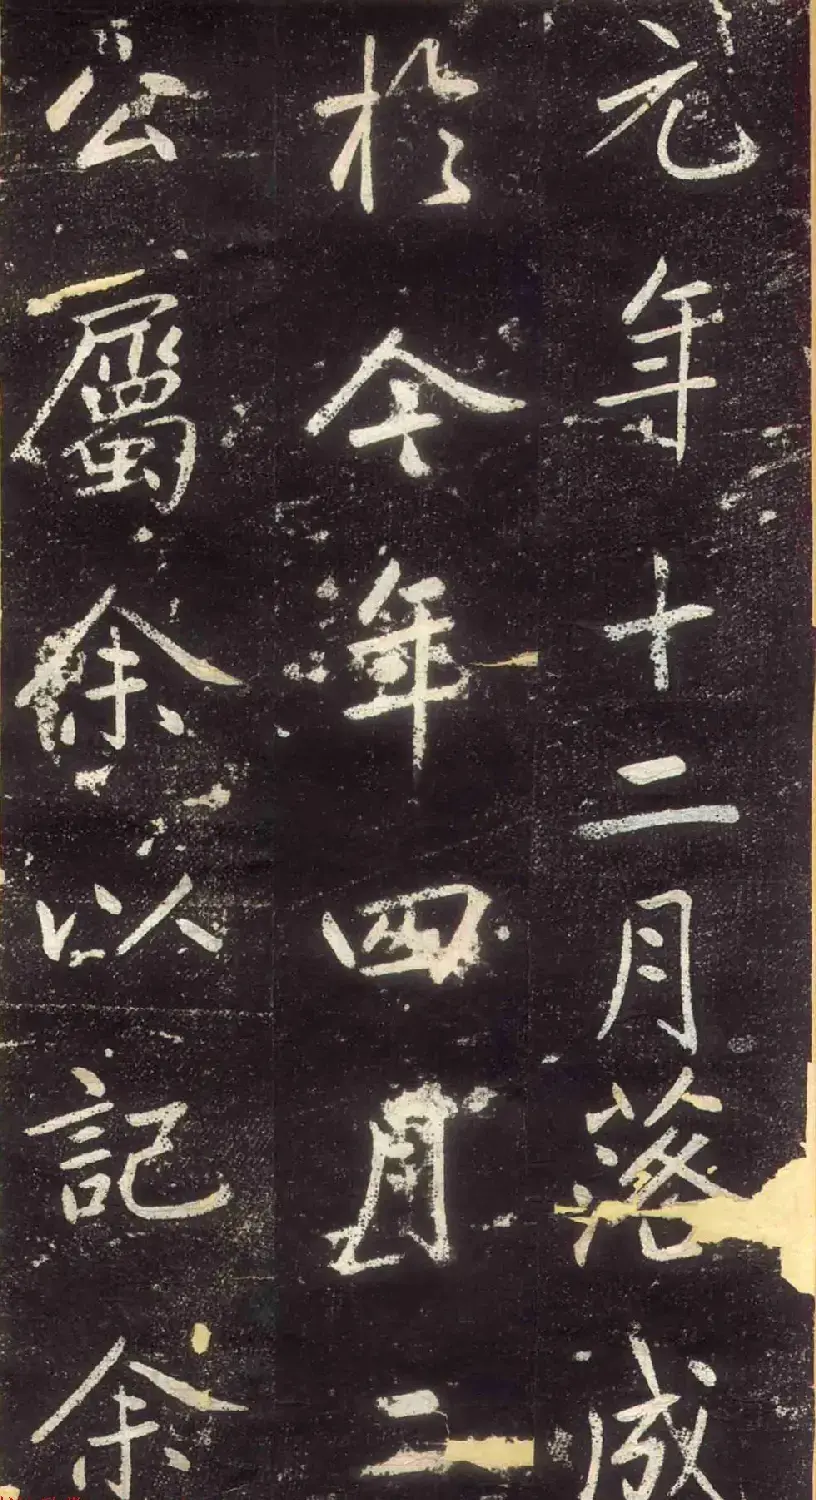 元年十二月落成
於今年四月二
公屬余以記余